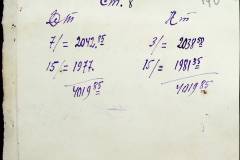 Ст. 8
Дт Кт
7/= 2042.85 3/= 2038.50
15/= 1977. 15/= 1981.35
4019 85 4019 85